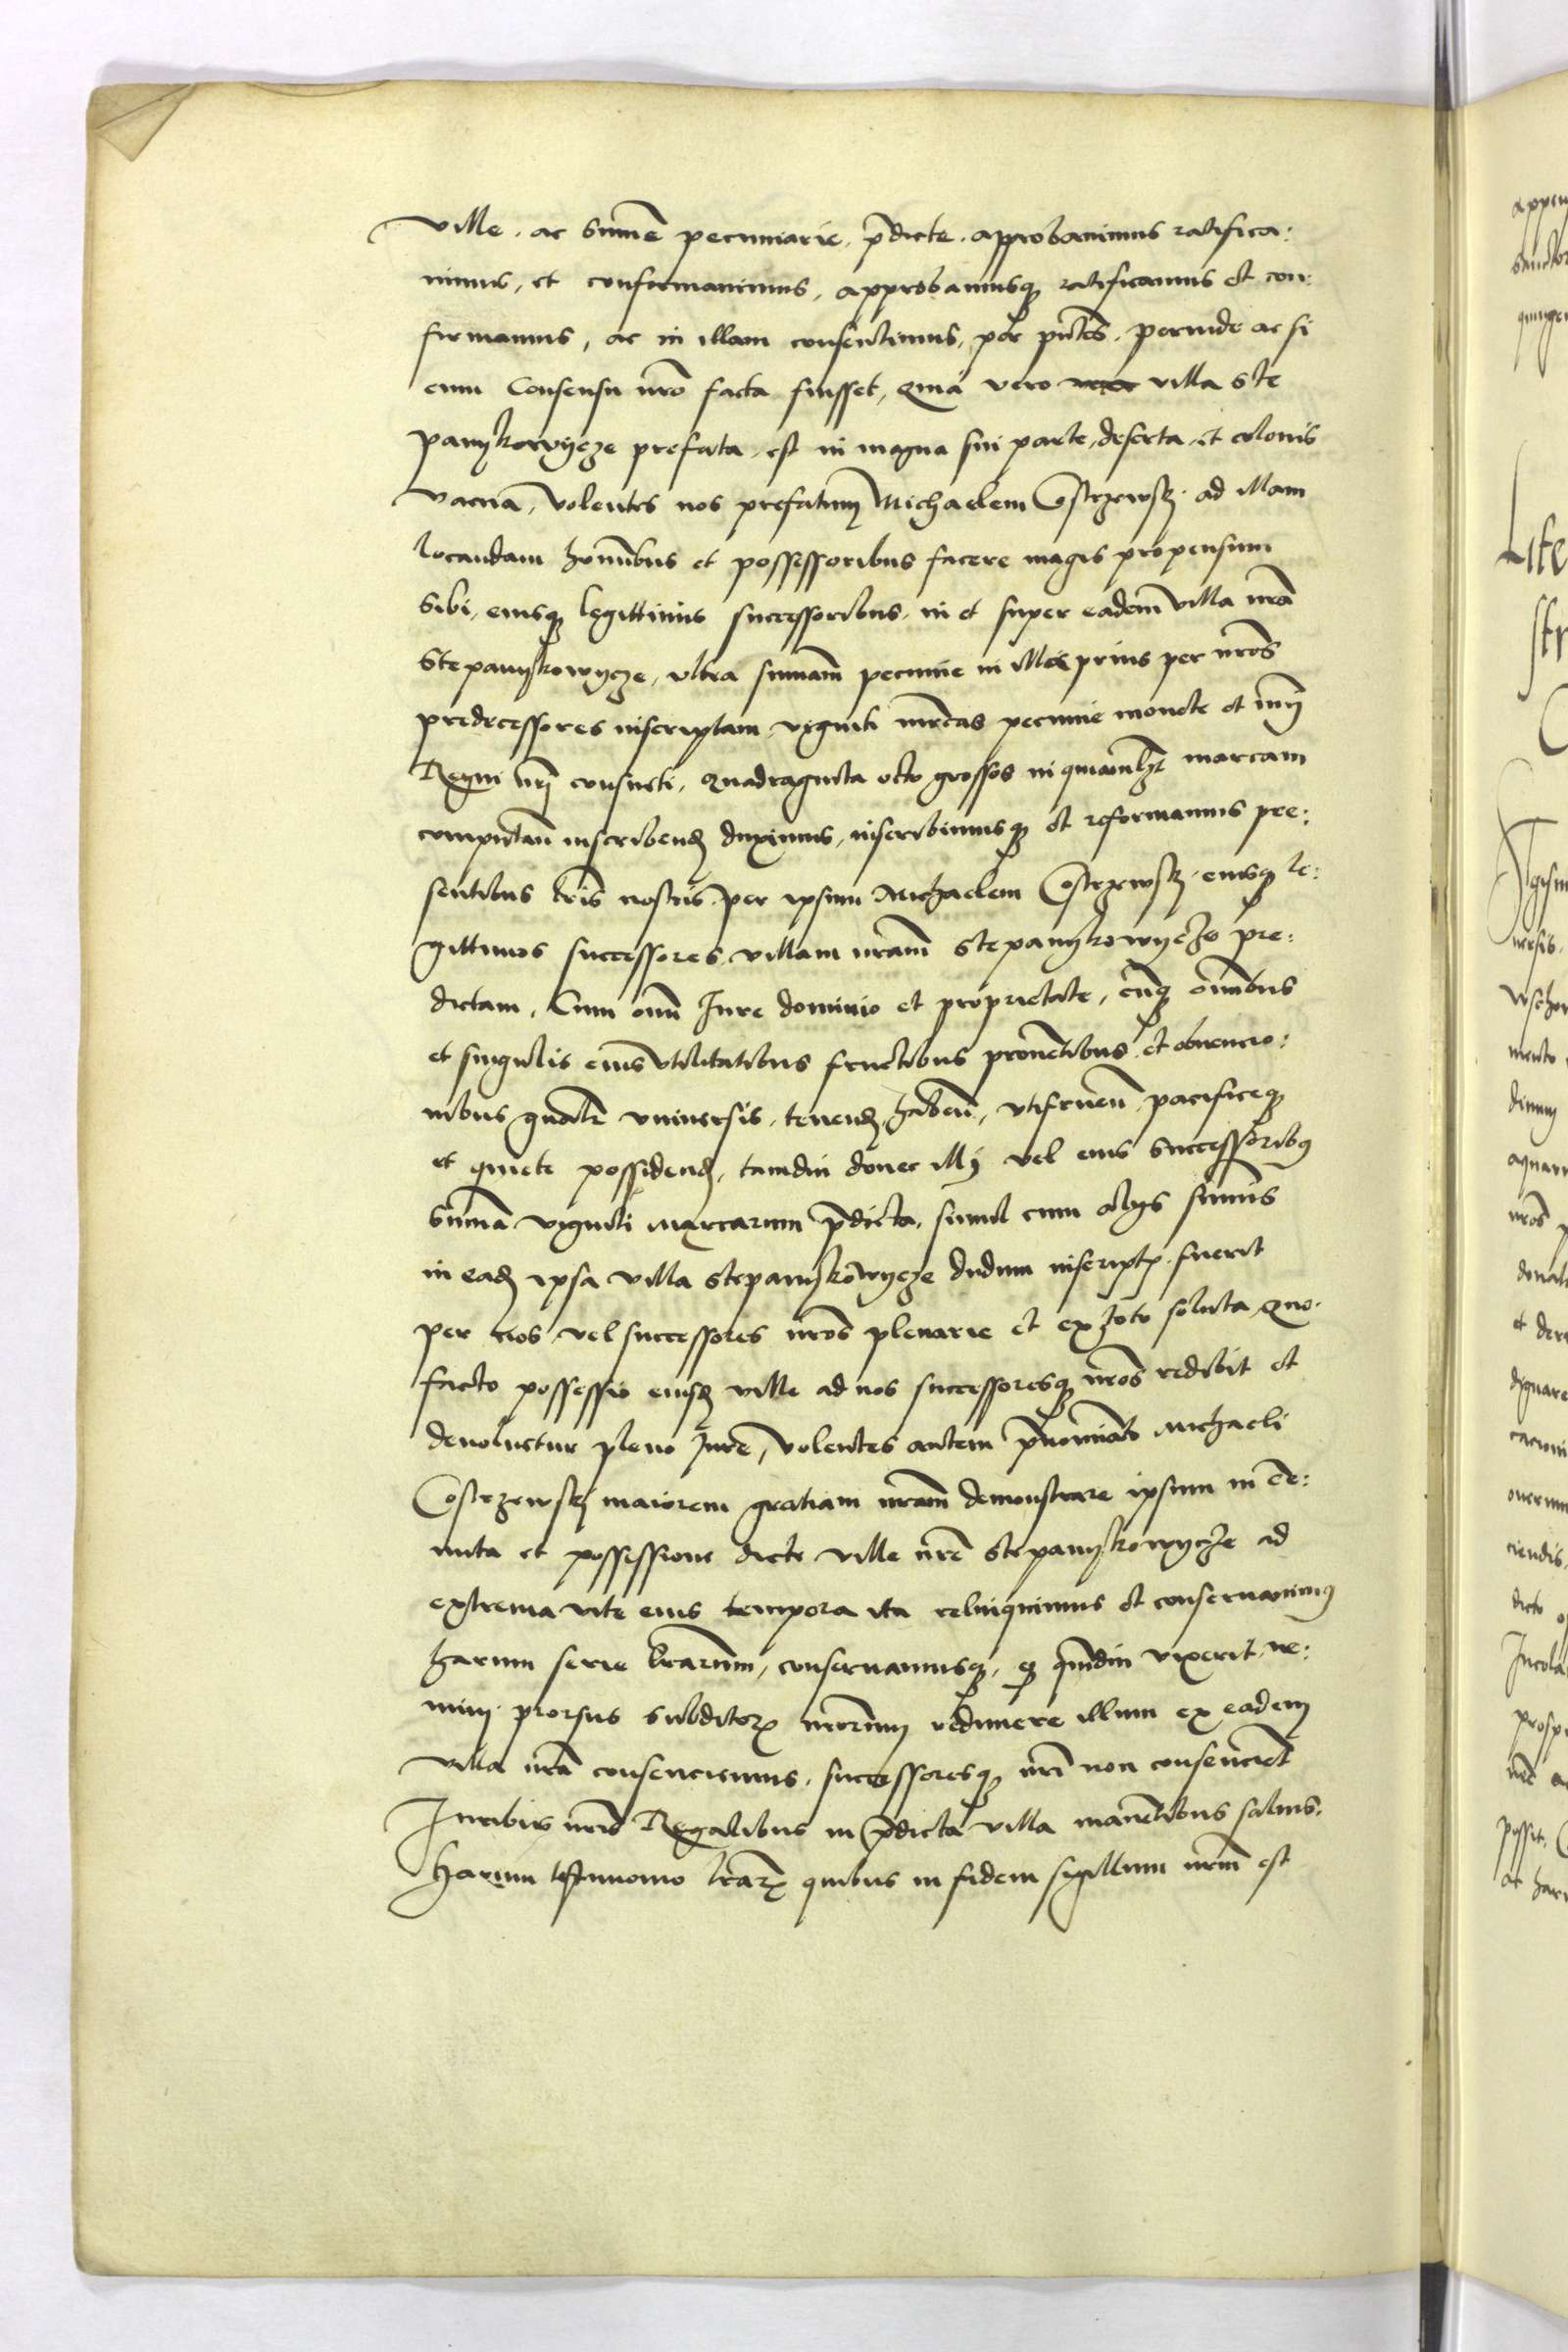 ville. ac summe pecuniarie. p̄dicte. approbavimus ratifica:
vimus, et confirmavimus, approbamusq̨ ratificamus et con:
firmamus, ac in illam consentimus, per pn̄tes. perinde ac si
cum Consensu nr̄o facta fuisset, Quia vero villa Ste
panÿkowÿcze prefata, est in magna sui parte, deserta, et colonis
vacua, Volentes nos prefatum Michaelem Costrzewsk̨. ad illam
locandam hominibus et possessoribus facere magis propensum
Sibi, eiusq̨ legittimis successoribus, in et super eadem villa nr̄a
Stepanÿkowÿcze, ultra summam pecunie in illa prius per nr̄os
predecessores inscriptam viginti mr̄cas pecunie monete et nūj
Regni nr̄j consueti, Quadraginta octo grossos in quamlꝫt marcam
computan̄ inscribend̨ duximus, inscribimusq̨ et reformamus pre:
sentibus lr̄is nostris, per ipsum Michaelem Costrzewsk̨. eiusq̨ le:
gittimos successores, villam nr̄am Stepanÿkowÿcze pre:
dictam, Cum om̄i Iure dominio et proprietate, cūq̨ om̄ibus
et singulis eius Utilitatibus fructibus proven̄tibus et obvencio:
nibus gn̄alr̄ universis, tenend̨ haben̄, utifruen̄ pacificeq̨
et quiete possidend̨, tamdiu donec illj vel eius Successoribꝯ
Summa viginti marcarum p̄dicta, simul cum alÿs summis
in ead̨ ipsa villa Stepanÿkowÿcze dudum inscriptꝭ. fuerit
per nos vel successores nr̄os plenarie et ex toto soluta, Quo.
facto possessio eiusd̨ ville ad nos successoresq̨ nr̄os redibit et
devoluetur pleno Iure, Volentes autem p̄nominato Michaeli
Costrzewskj maiorem gratiam nr̄am demonstrare ipsum in te:
nuta et possessione dicte ville nr̄e Stepanÿkowÿcze ad
extrema vite eius tempora ita relinquimus et conservavimꝯ
harum serie lr̄arum, conservamusq̨, q̨ qm̄diu vixerit, ne:
minj prorsus Subditorꝝ nr̄orum redimere illum ex eadem
villa nr̄a consenciemus, successoresq̨ nr̄i non consencient
Iuribus nr̄is Regalibus in p̄dicta villa manen̄tibus salvis.
Harum testimonio lr̄arꝝ quibus in fidem sigillum nr̄m est